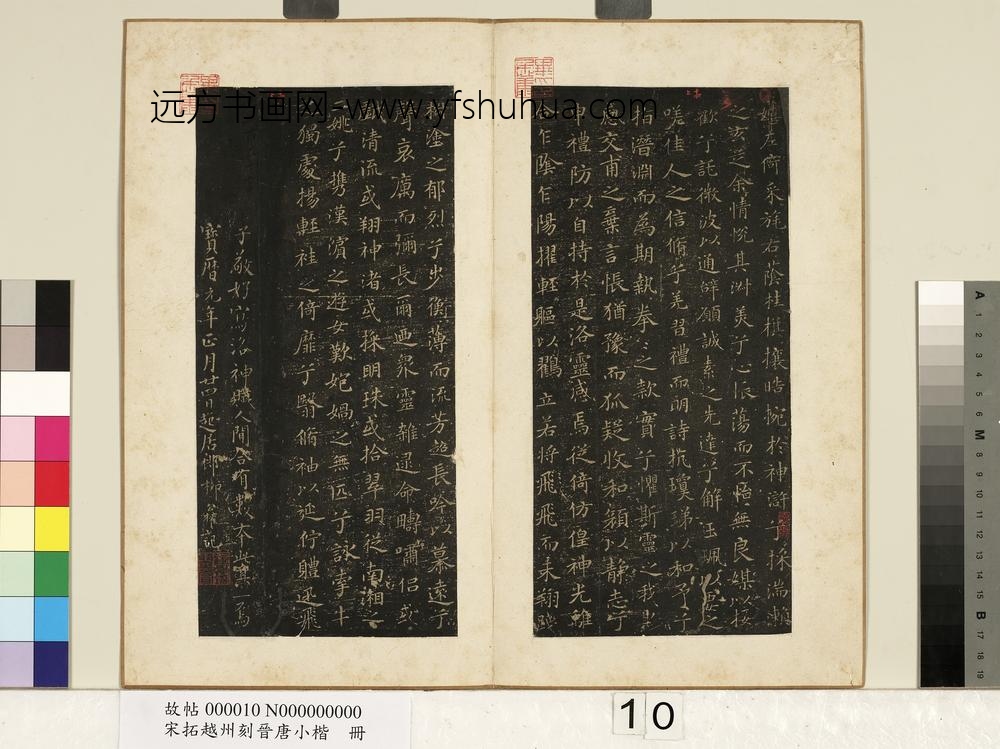 嬉左倚采旄右蔭桂旗攘皓捥於神滸兮採湍瀨
之玄芝余情悅其淑美兮心振蕩而不怡無良媒以接
歡兮託微波以通辭願誠素之先達兮解玉珮以要之
嗟佳人之信脩兮羌習禮而明詩抗瓊珶以和予兮
指潛淵而為期執拳〻之款實兮懼斯靈之我欺
感交甫之棄言悵猶豫而狐疑收和顏以靜志兮
申禮防以自持於是洛靈感焉徙倚仿偟神光離
合乍陰乍陽擢輕軀以鶴立若將飛飛而未翔踐
椒塗之郁烈兮步衡薄而流芳超長吟以慕遠兮
聲哀厲而彌長爾迺眾靈雜遝命疇嘯侶或
戲清流或翔神渚或採明珠或拾翠羽從南湘之
二姚兮攜漢濱之遊女歎匏媧之無匹兮詠牽牛
之獨處揚輕袿之倚靡兮翳脩袖以延佇體迅飛
子敬好寫洛神賦人間合有數本此其一焉
寶曆元年正月廿四日起居郎柳公權記
远方书画网-www.yfshuhua.com
故帖 000010 N000000000
宋拓越州刻晉唐小楷 冊
10
A 1 2 3 4 5 6 M 8 9 10 11 12 13 14 15 B 17 18 19